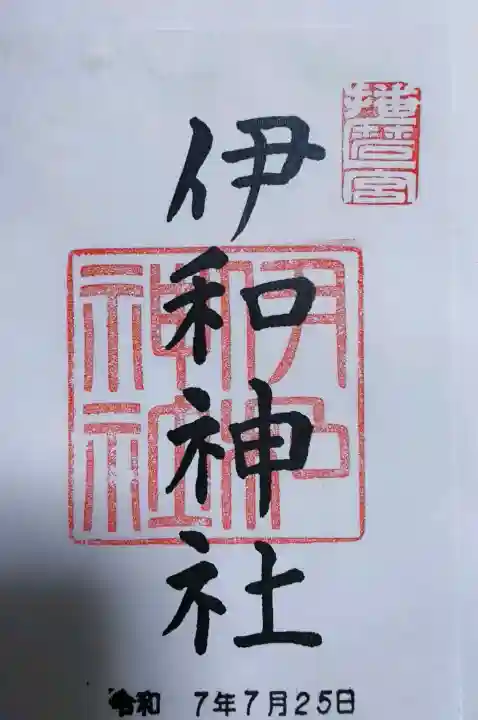 播磨一宮
伊和神社
伊和神社
令和 7年7月25日